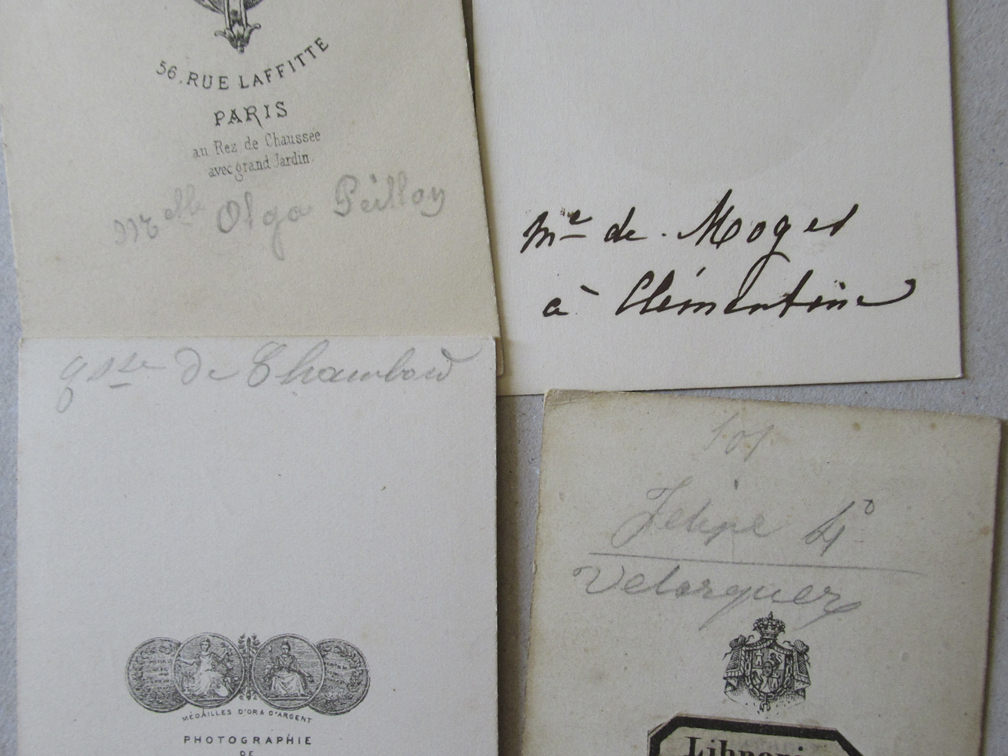 56, RUE LAFFITTE
PARIS
au Rez de Chaussée
avec grand Jardin
Mr elle Olga Peillon
Me de Moges
à Clémentine
de Chambord
MÉDAILLES D'OR & D'ARGENT
PHOTOGRAPHIE
DE
101
Felipe 4º
Velasquez